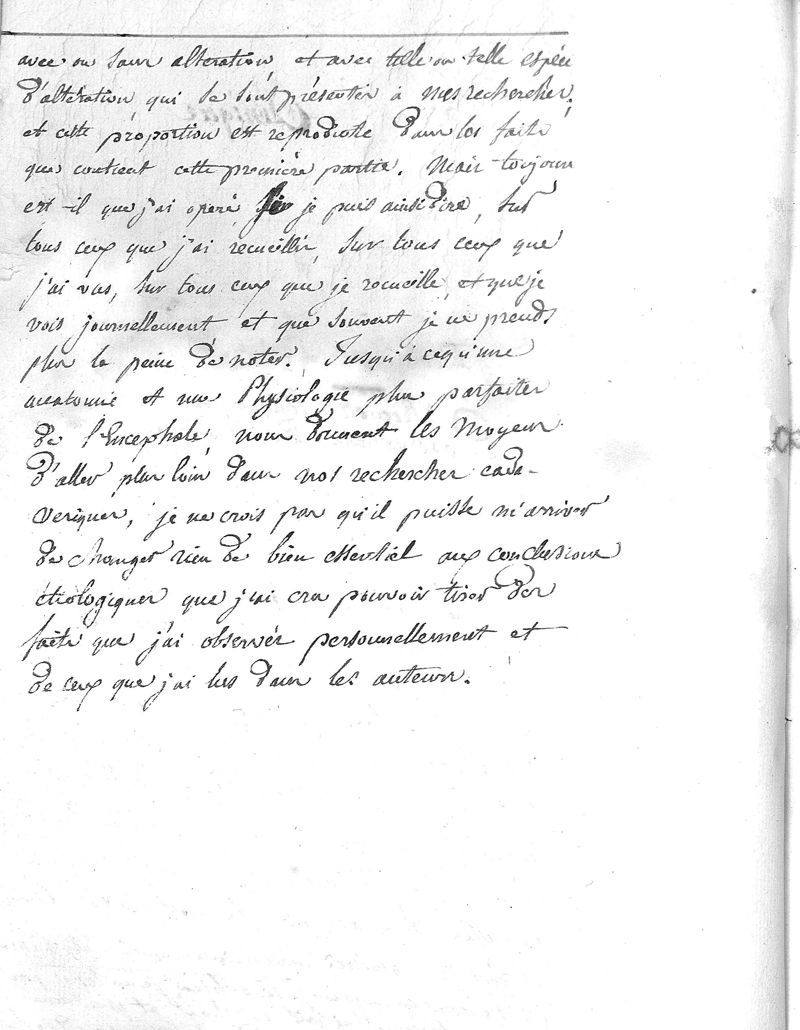 avec ou sans alteration, et avec telle ou telle espéce
d'altération, qui se sont présentés à mes recherches.
et cette proportion est reproduite dans les faits
que contient cette premiére partie. Mais toujours
est-il que j'ai operé si je puis ainsi dire, sur
tous ceux que j'ai recueillis, sur tous ceux que
j'ai vus, sur tous ceux que je recueille, et que je
vois journellement et que souvent je ne prends
plus la peine de noter. Jusqu'à ce qu'une
anatomie et une Physiologie plus parfaites
de l'Encephale, nous donnent les moyens
d'aller plus loin dans nos recherches cada-
veriques, je ne crois pas qu'il puisse m'arriver
de changer rien de bien essentiel aux conclusions
étiologiques que j'ai cru pouvoir tirer des
faits que j'ai observés personnellement et
de ceux que j'ai lus dans les auteurs.